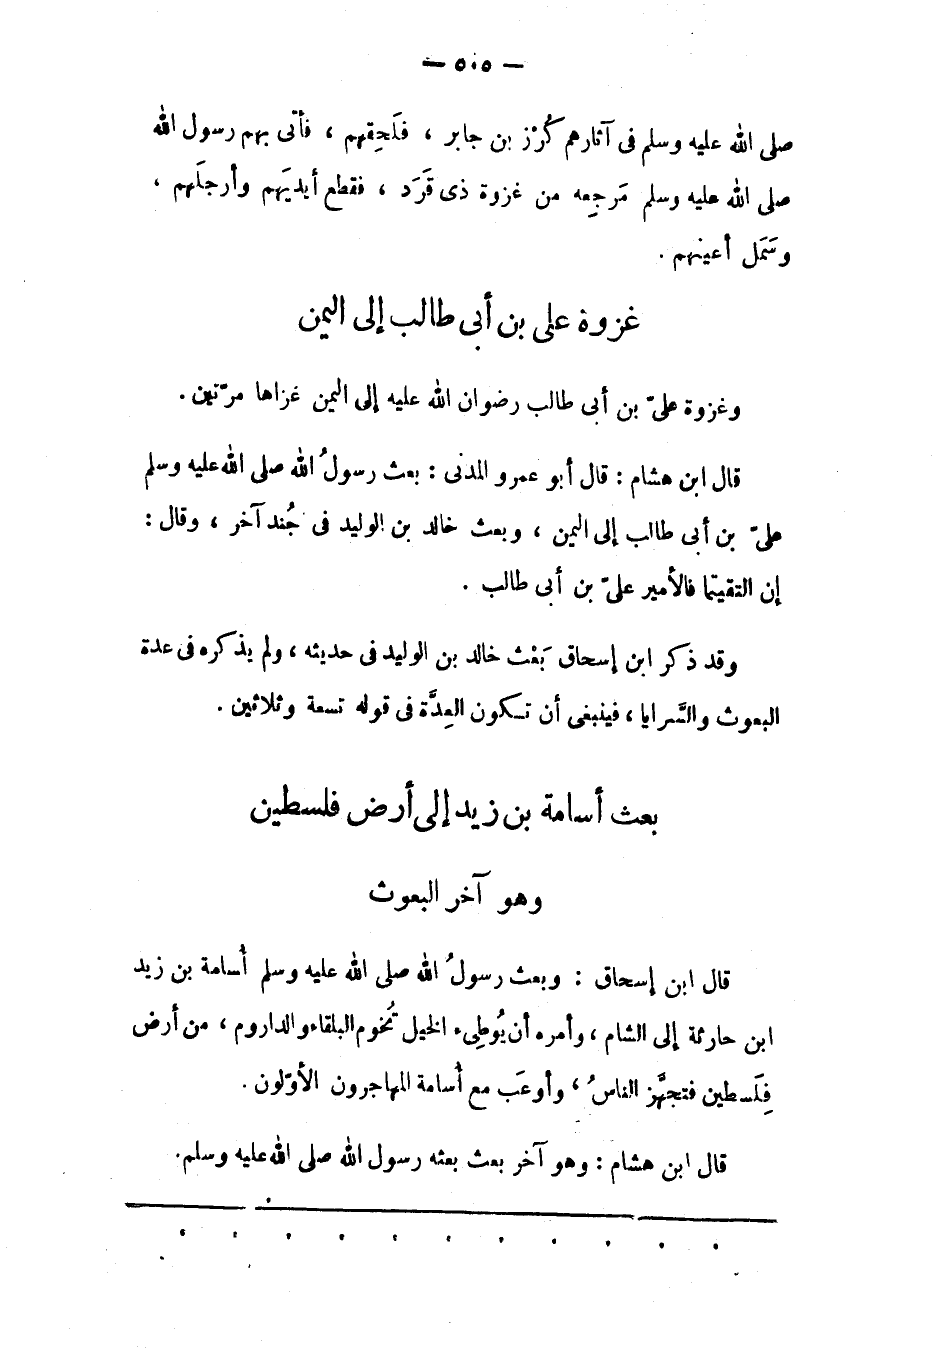 — ٥٠٥ —
صلى الله عليه وسلم فى آثارهم كُرْز بن جابر ، فلَحِقهم ، فأتى بهم رسول الله
صلى الله عليه وسلم مَرجِعه من غزوة ذى قَرَد ، فقطع أيديَهم وأرجلَهم ،
وسَمَل أعينهم .
غزوة على بن أبى طالب إلى اليمن
وغزوة علىّ بن أبى طالب رضوان الله عليه إلى اليمن غزاها مرّتين .
قال ابن هشام : قال أبو عمرو المدنى : بعث رسولُ الله صلى الله عليه وسلم
علىّ بن أبى طالب إلى اليمن ، وبعث خالد بن الوليد فى جُند آخر ، وقال :
إن التقيتما فالأمير علىّ بن أبى طالب .
وقد ذكر ابن إسحاق بَعْث خالد بن الوليد فى حديثه ، ولم يذكره فى عدة
البعوث والسَّرايا ، فينبغى أن تكون العِدَّة فى قوله تسعة وثلاثين .
بعث أسامة بن زيد إلى أرض فلسطين
وهو آخر البعوث
قال ابن إسحاق : وبعث رسولُ الله صلى الله عليه وسلم أُسامة بن زيد
ابن حارثة إلى الشام ، وأمره أن يُوطِىء الخيل تُخوم البلقاء والداروم ، من أرض
فِلَسطين فتجهَّز الناسُ ، وأوعَب مع أُسامة المهاجرون الأوّلون .
قال ابن هشام : وهو آخر بعث بعثه رسول الله صلى الله عليه وسلم .